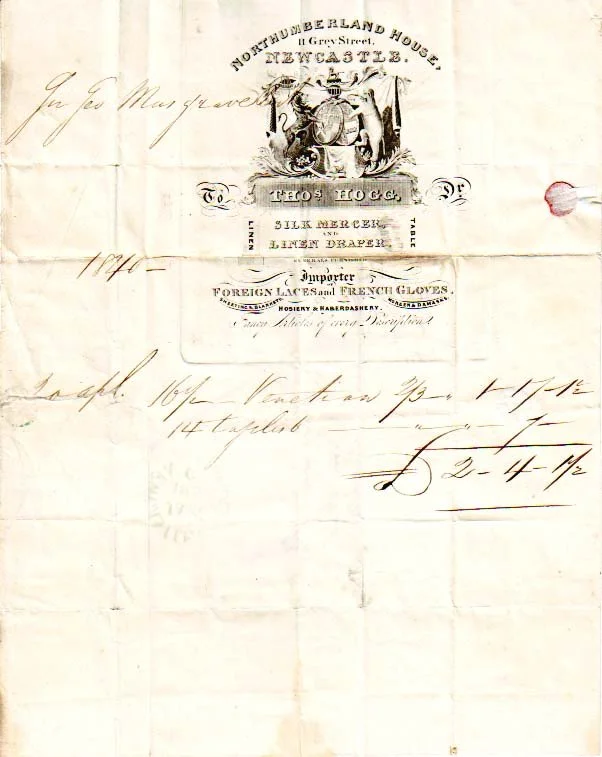 NORTHUMBERLAND HOUSE,
11 Grey Street,
NEWCASTLE.
Geo Musgrave
To THOS HOGG, Dr
LINEN
SILK MERCER,
AND
LINEN DRAPER,
TABLE
FUNERALS FURNISHED
1840 –
Importer
FOREIGN LACES and FRENCH GLOVES.
SHEETING & BLANKETS
MOREEN & DAMASKS
HOSIERY & HABERDASHERY.
Fancy Articles of every Description
20 apl. 16½ Venetian 2/3 " 1 – 17 – 1½
14 " " 7 –
£ 2 – 4 – 1½